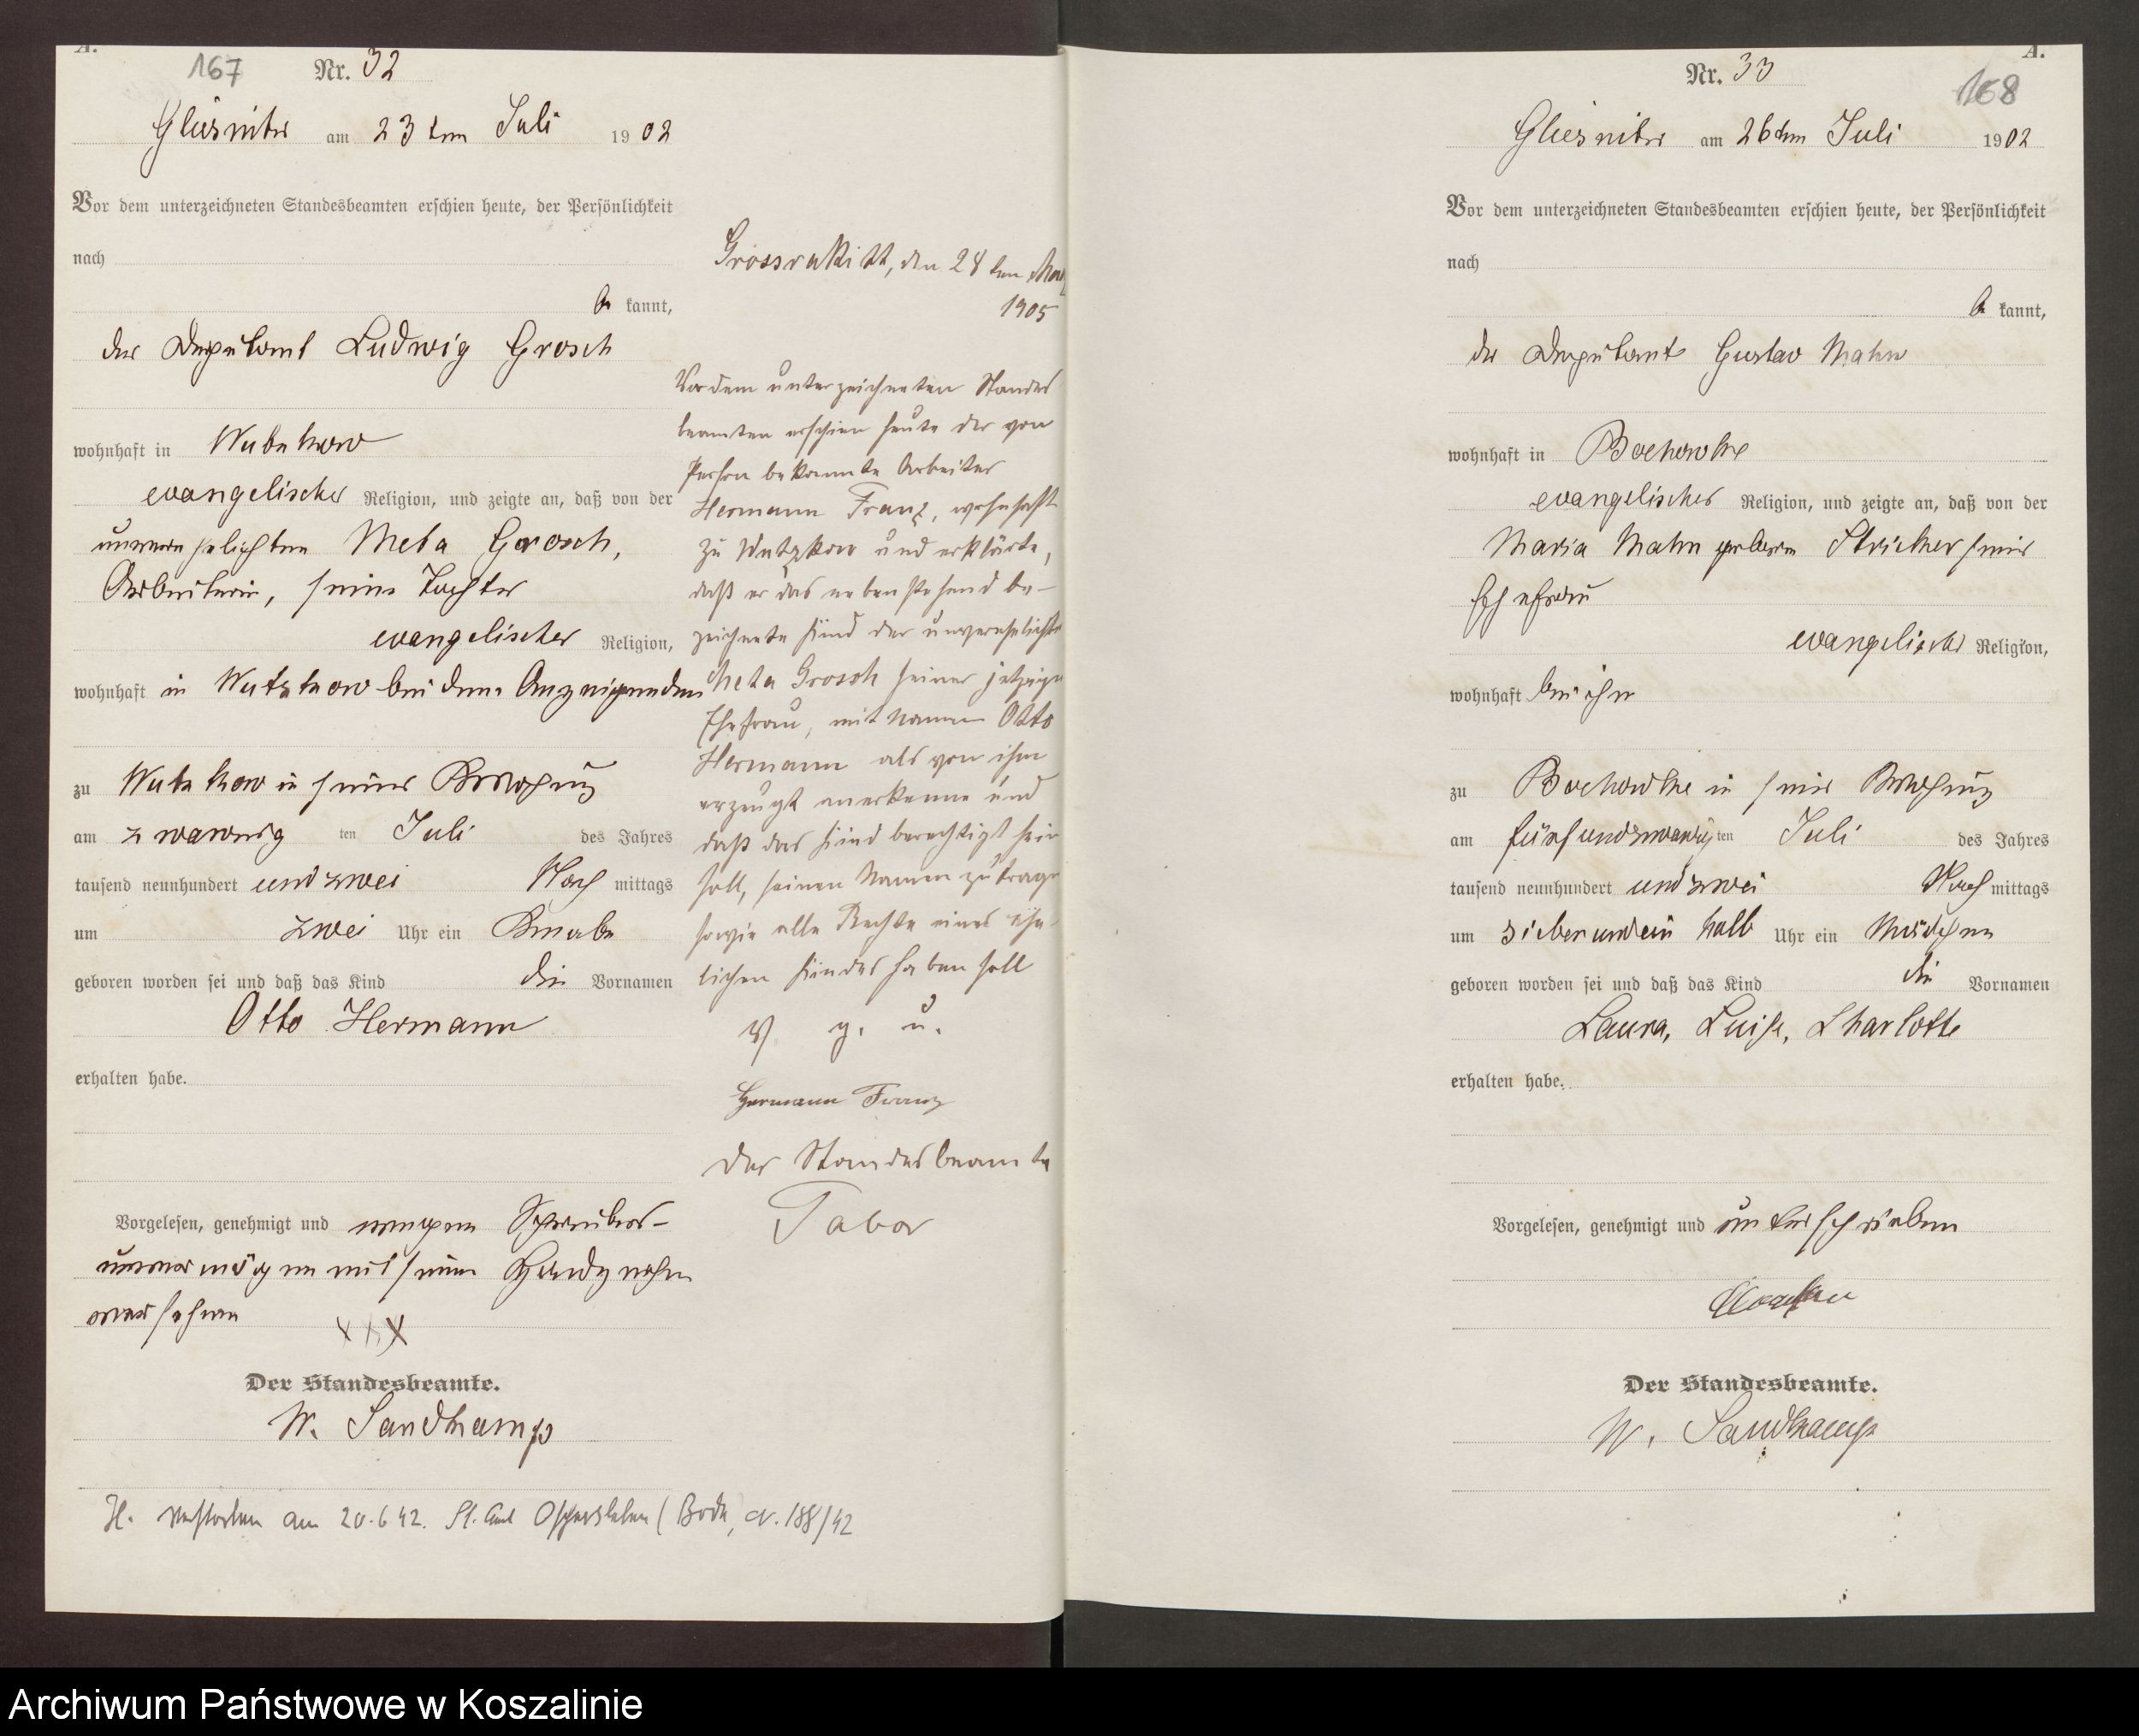 A.
167 Nr. 32
Gliesnitz am 23ten Juli 1902
Vor dem unterzeichneten Standesbeamten erschien heute, der Persönlichkeit
nach
be kannt,
der Deputant Ludwig Grosch
wohnhaft in Wutzkow
evangelischer Religion, und zeigte an, daß von der
unverehelichten Meta Grosch,
Arbeiterin, seine Tochter
evangelischer Religion,
wohnhaft in Wutzkow bei dem Anzeigenden
zu Wutzkow in seiner Wohnung
am zwanzig ten Juli des Jahres
tausend neunhundert und zwei Nach mittags
um zwei Uhr ein Knabe
geboren worden sei und daß das Kind die Vornamen
Otto Hermann
erhalten habe.
Vorgelesen, genehmigt und wegen Schreibens-
unvermögen mit seinem Handzeichen
versehen
XXX
Der Standesbeamte.
W. Sandkamp
H. verstorben am 20.6.42. St. Amt Oschersleben (Bode, Nr. 188/42
Grossrakitt, den 24ten May
1905
Vor dem unterzeichneten Standes
beamten erschien heute der von
Person bekannte Arbeiter
Hermann Franz, wohnhaft
zu Wutzkow und erklärte,
daß er das nebenstehend be-
zeichnete Kind der unverehelichte
Meta Grosch seiner jetzige
Ehefrau, mit Namen Otto
Hermann als von ihm
erzeugt anerkenne und
daß das Kind berechtigt sein
soll, seinen Namen zu trage
sowie alle Rechte eines ehe-
lichen Kindes haben soll
v. g. u.
Hermann Franz
Der Standesbeamte
Tabor
A.
Nr. 33
168
Gliesnitz am 26ten Juli 1902
Vor dem unterzeichneten Standesbeamten erschien heute, der Persönlichkeit
nach
be kannt,
der Deputant Gustav Mahn
wohnhaft in Bochowke
evangelischer Religion, und zeigte an, daß von der
Maria Mahn geborne Stricker seine
Ehefrau
evangelischer Religion,
wohnhaft bei ihm
zu Bochowke in seiner Wohnung
am fünfundzwanzig ten Juli des Jahres
tausend neunhundert und zwei Nach mittags
um sieben und ein halb Uhr ein Mädchen
geboren worden sei und daß das Kind die Vornamen
Laura, Luise, Charlotte
erhalten habe.
Vorgelesen, genehmigt und unterschrieben
Der Standesbeamte.
W. Sandkamp
Archiwum Państwowe w Koszalinie